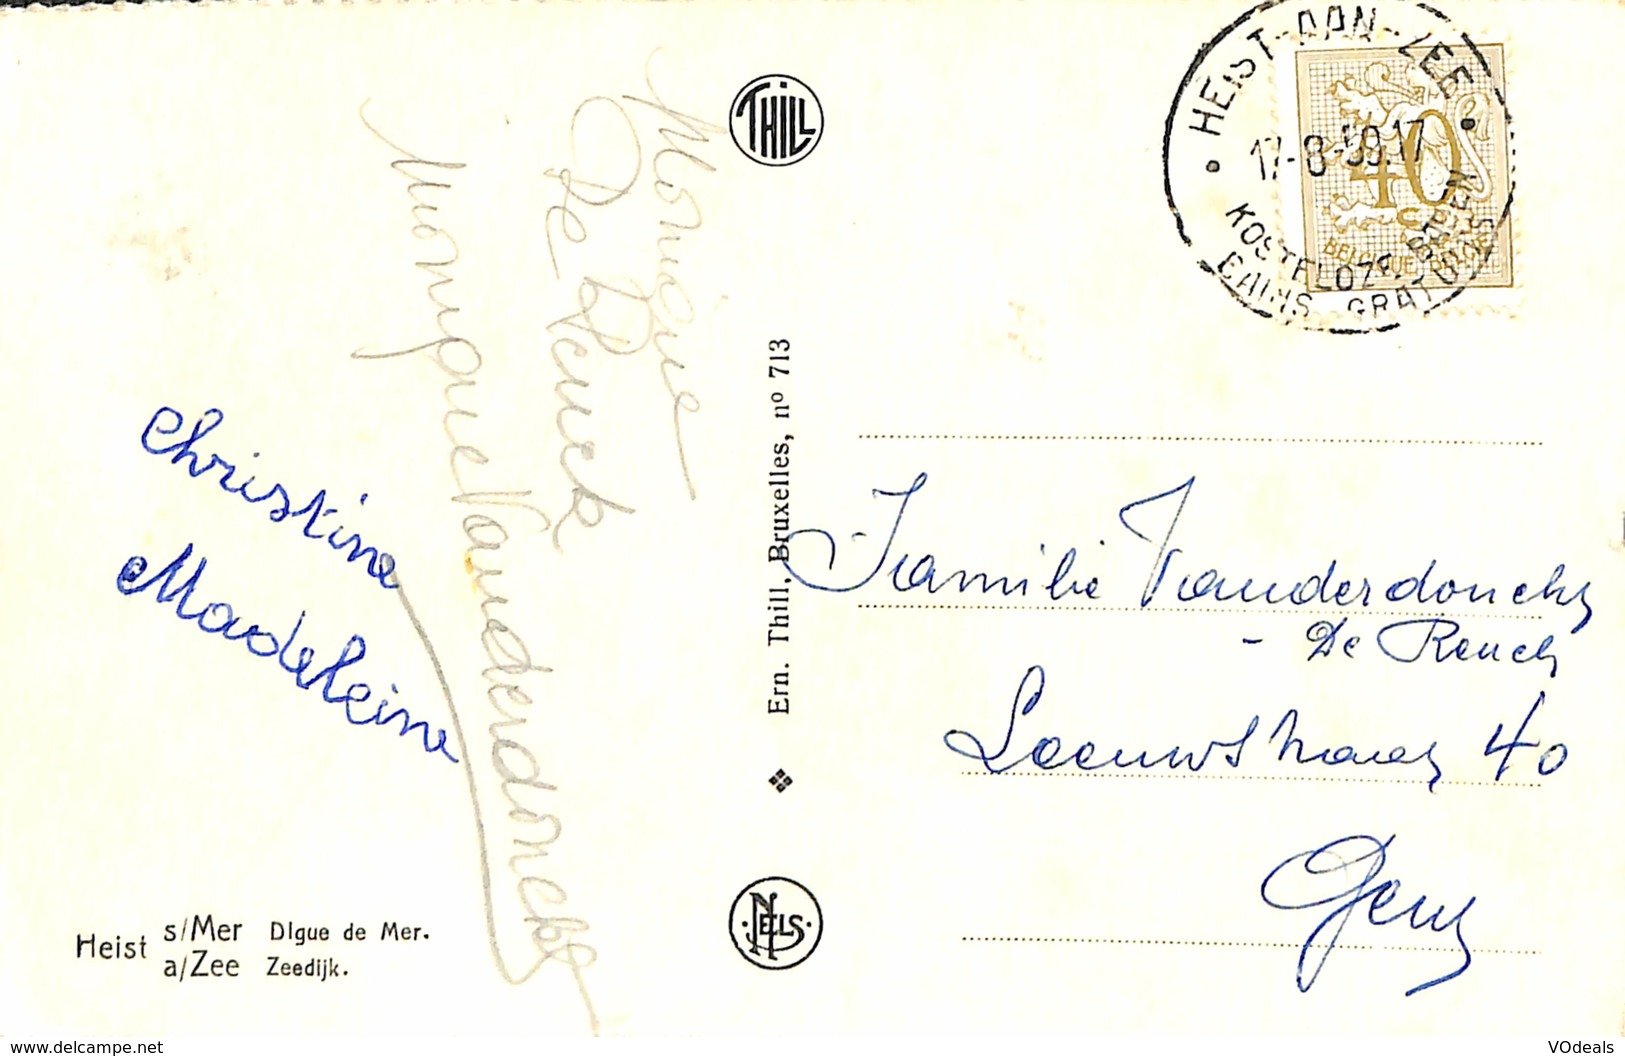 THILL
HEIST-AAN-ZEE
17-8-59.17
KOSTELOZE BADEN
BAINS GRATUITS
40
BELGIQUE BELGIE
Monique
De Reuck
Monique Vanderdonckt
Christine
Madeleine
Ern. Thill, Bruxelles, nº 713
Familie Vanderdonckt
- De Reuck
Leeuwstraat 40
Gent
NELS
Heist s/Mer Digue de Mer.
a/Zee Zeedijk.
https://www.delcampe.net
VOdeals